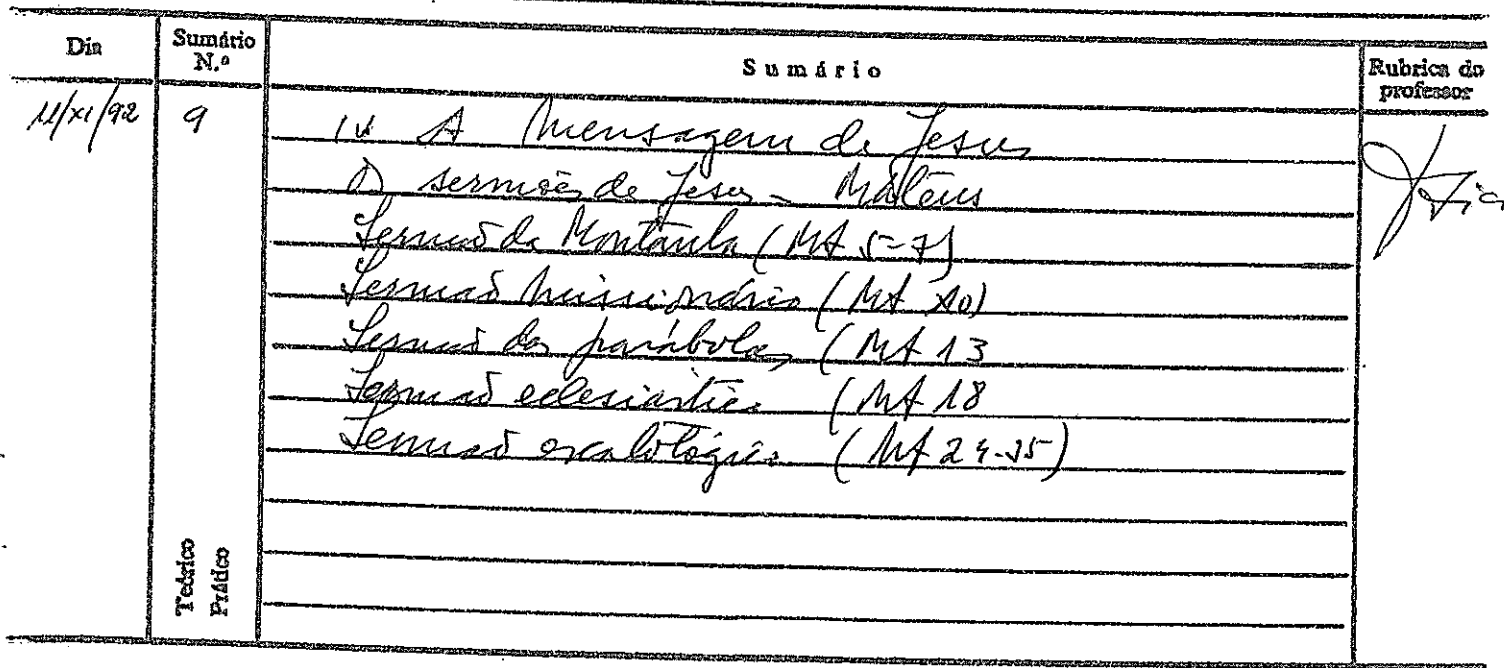 Dia Sumário N.º Sumário Rubrica do professor
11/XI/92 9 IV A Mensagem de Jesus
Os sermões de Jesus - Mateus
Sermão da Montanha (Mt 5-7)
Sermão missionário (Mt 10)
Sermão das parábolas (Mt 13
Sermão eclesiástico (Mt 18
Sermão escatológico (Mt 24-25)
Teórico
Prático